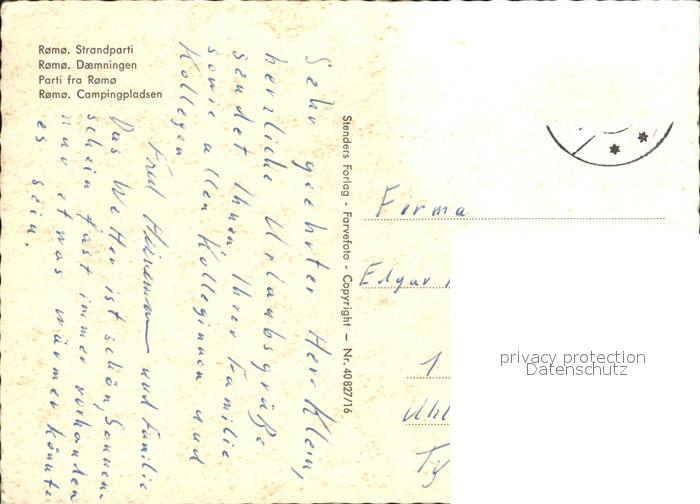 Rømø. Strandparti
Rømø. Dæmningen
Parti fra Rømø
Rømø. Campingpladsen
Sehr geehrter Herr Klein,
herrliche Urlaubsgrüße
sendet Ihnen, Ihrer Familie
sowie allen Kolleginnen und
Kollegen
Fred Heinemann und Familie
Das Wetter ist schön, Sonnen-
schein fast immer vorhanden
nur etwas wärmer könnte
es sein.
Stenders Forlag - Farvefoto - Copyright - Nr. 40827/16
Firma
Edgar
1
privacy protection
Datenschutz